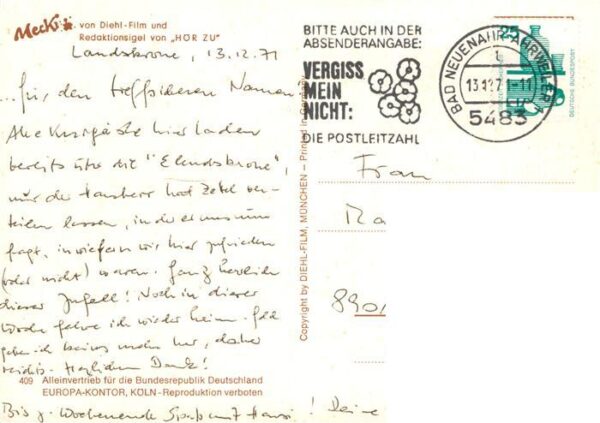 Mecki
von Diehl-Film und
Redaktionsigel von "HÖR ZU"
Landskrone, 13.12.71
...für den treffsicheren Namen.
Alle Kurgäste hier laden
bereits über die "Elendskrone",
nur der Hausherr hat Zettel ver-
teilen lassen, in der er uns nun
fragt, inwiefern wir hier zufrieden
(oder nicht) waren. Ganz herrlich
dieser Zufall! Noch in dieser
Woche fahre ich wieder heim. Geld
gebe ich keins mehr her, daher
nichts. Herzlichen Dank!
409 Alleinvertrieb für die Bundesrepublik Deutschland
EUROPA-KONTOR, KÖLN - Reproduktion verboten
Bis z. Wochenende Spaß mit Hansi! Deine
Copyright by DIEHL-FILM, MÜNCHEN – Printed in Germany
BITTE AUCH IN DER
ABSENDERANGABE:
VERGISS
MEIN
NICHT:
DIE POSTLEITZAHL
BAD NEUENAHR-AHRWEILER 1
5483
25
DEUTSCHE BUNDESPOST
Frau
Ra
890